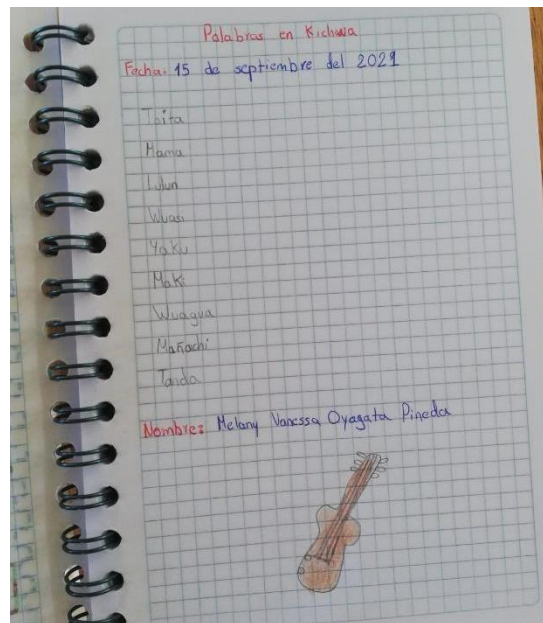 Palabras en Kichwa
Fecha: 15 de septiembre del 2021
Taita
Mama
Lulun
Wuasi
Yaku
Maki
Wuagua
Mañachi
Tanda
Nombre: Melany Vanessa Oyagata Pineda